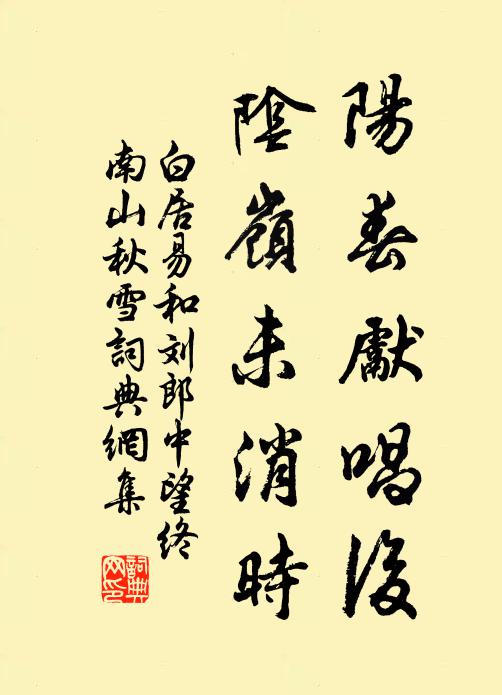 陽春獻唱後
陰嶺未消時
白居易和刘郎中望终
南山秋雪詞典網集
詞典网印